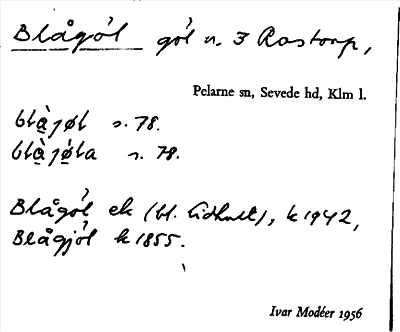 Blågöl göl n. 3 Rostorp,
Pelarne sn, Sevede hd, Klm l.
blàjøl s. 78.
blàjøla s. 78.
Blågöl ek (bl. Lidhult), k 1942,
Blågjöl k 1855.
Ivar Modéer 1956